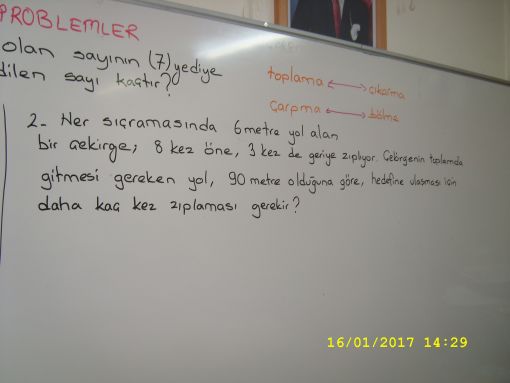 PROBLEMLER
olan sayının (7) yediye
dilen sayı kaçtır?
toplama ↔ çıkarma
çarpma ↔ bölme
2- Her sıçramasında 6 metre yol alan
bir çekirge, 8 kez öne, 3 kez de geriye zıplıyor. Çekirgenin toplamda
gitmesi gereken yol, 90 metre olduğuna göre, hedefine ulaşması için
daha kaç kez zıplaması gerekir?
16/01/2017 14:29